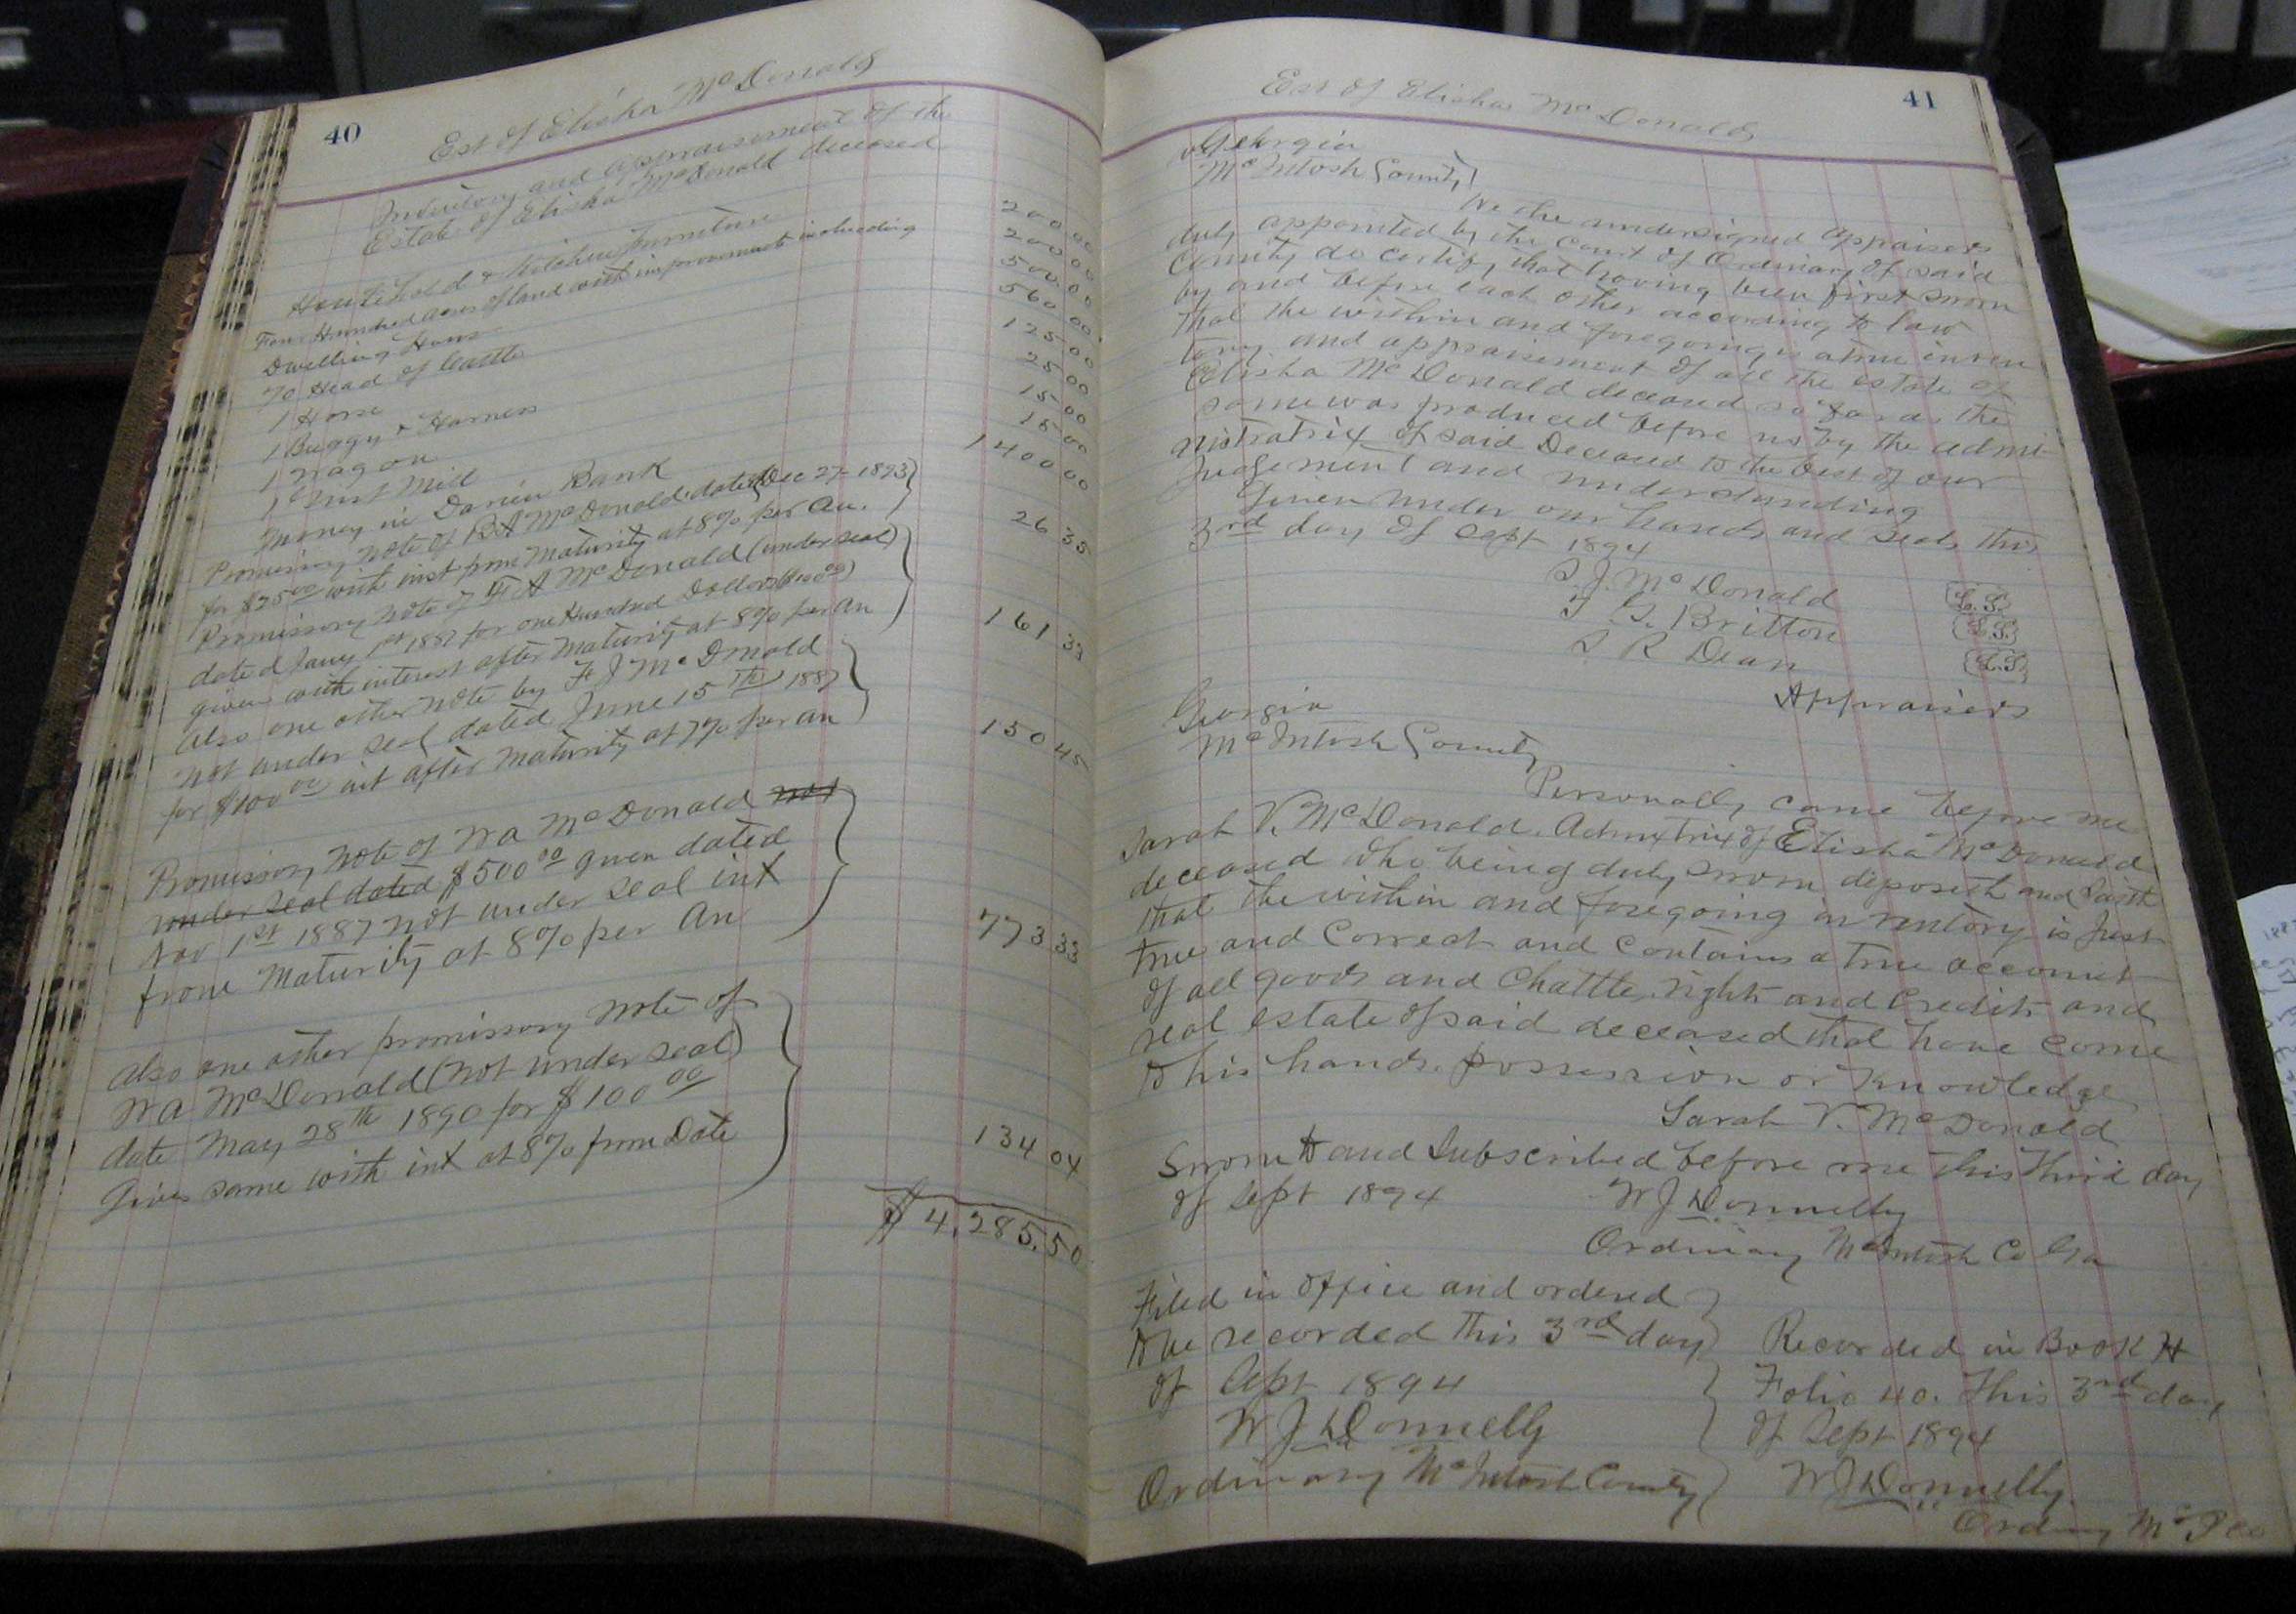 40
Est of Elisha McDonald
Inventory and appraisement of the
Estate of Elisha McDonald deceased
Household & Kitchen furniture 200 00
Four Hundred acres of land with improvements including 200 00
Dwelling House 500 00
70 Head of Cattle 560 00
1 Horse 125 00
1 Buggy & Harness 25 00
1 Wagon 15 00
1 Grist Mill 15 00
Money in Darien Bank 1400 00
Promissory note of McDonald dated Dec 27 1893
for $25 00 with inst from maturity at 8% per An. 26 35
Promissory note of McDonald (under seal)
dated Jany 1st 1887 for one Hundred Dollars
given with interest after Maturity at 8% per an 161 33
Also one other note by McDonald
not under seal dated June 15th 1887
for $100 00 int after maturity at 7% per an 150 45
Promissory note of W A McDonald not
under seal dated $500 00 given dated
Nov 1st 1887 not under seal int
from Maturity at 8% per An 773 33
Also one other promissory note of
W A McDonald (not under seal)
date May 28th 1890 for $100 00
Given same with int at 8% from Date 134 04
$4,285.50
41
Est of Elisha McDonald
Georgia
McIntosh County
We the undersigned appraisers
duly appointed by the Court of Ordinary of said
County do certify that having been first sworn
by and before each other according to law
that the within and foregoing is a true inven
tory and appraisement of all the estate of
Elisha McDonald deceased so far as the
same was produced before us by the admi
nistratrix of said Deceased to the best of our
Judgement and understanding
Given under our hands and seals this
3rd day of Sept 1894
McDonald (L.S.)
Britton (L.S.)
R Dean (L.S.)
Appraisers
Georgia
McIntosh County
Personally came before me
Sarah V. McDonald. Admxtrix of Elisha McDonald
deceased who being duly sworn deposeth and saith
that the within and foregoing inventory is Just
true and Correct and Contains a true account
of all goods and Chattle, rights and Credits and
real estate of said deceased that have come
to his hands, possession or knowledge
Sarah V. McDonald
Sworn to and Subscribed before me this third day
of Sept 1894 W J Donnelly
Ordinary McIntosh Co Ga
Filed in office and ordered
to be recorded this 3rd day
of Sept 1894
W J Donnelly
Ordinary McIntosh County
Recorded in Book H
Folio 40. This 3rd day
of Sept 1894
W J Donnelly